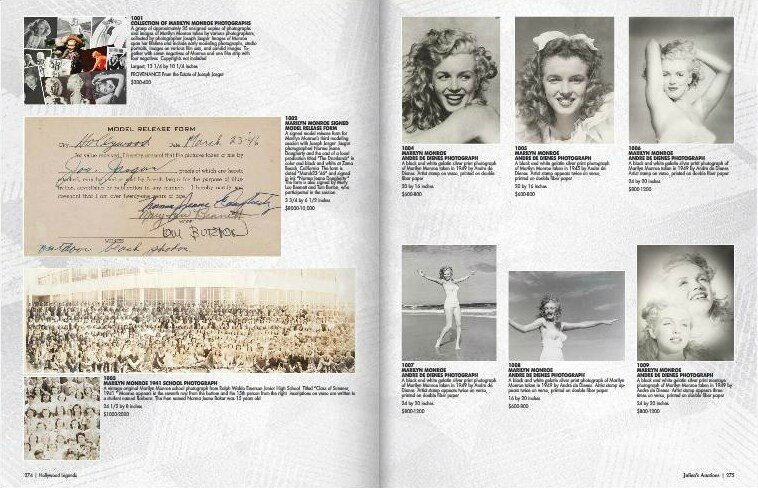 1001
COLLECTION OF MARILYN MONROE PHOTOGRAPHS
A group of approximately 35 unsigned copies of photographs
and images of Marilyn Monroe taken by various photographers,
collected by photographer Joseph Jasgur. Images of Monroe
span her lifetime and include early modeling photographs, studio
portraits, images on various film sets, and candid images. To-
gether with some negatives of Monroe and one film strip with
four negatives. Copyrights not included.
Largest, 13 1/4 by 10 1/4 inches
PROVENANCE From the Estate of Joseph Jasgur
$200-400
MODEL RELEASE FORM
City Hollywood Date March 23 '46
For value received, I hereby consent that the pictures taken of me by
Joe Jasgur proofs of which are hereto
Norma Jeane Dougherty
Mary Lou Bennett
Tom Burton
WITNESS
1002
MARILYN MONROE SIGNED
MODEL RELEASE FORM
A signed model release form for
Marilyn Monroe's third modeling
session with Joseph Jasgur. Jasgur
photographed Norma Jeane
Dougherty and the cast of a local
production titled "The Drunkards" in
color and black and white at Zuma
Beach, California. The form is
dated "March23 '46" and signed
in ink "Norma Jeane Dougherty."
The form is also signed by Mary
Lou Bennett and Tom Burton, who
participated in the session.
3 3/4 by 6 1/2 inches
$8000-10,000
1003
MARILYN MONROE 1941 SCHOOL PHOTOGRAPH
A vintage original Marilyn Monroe school photograph from Ralph Waldo Emerson Junior High School. Titled "Class of Summer,
1941." Monroe appears in the seventh row from the bottom and the 15th person from the right. Inscriptions on verso are written to
a student named Barbara. The then named Norma Jeane Baker was 15 years old.
24 1/2 by 8 inches
$1000-2000
274 | Hollywood Legends
1004
MARILYN MONROE
ANDRE DE DIENES PHOTOGRAPH
A black and white gelatin silver print photograph
of Marilyn Monroe taken in 1949 by Andre de
Dienes. Artist stamp on verso, printed on double
fiber paper.
20 by 16 inches
$600-800
1005
MARILYN MONROE
ANDRE DE DIENES PHOTOGRAPH
A black and white gelatin silver print photograph
of Marilyn Monroe taken in 1945 by Andre de
Dienes. Artist stamp appears twice on verso,
printed on double fiber paper.
20 by 16 inches
$600-800
1006
MARILYN MONROE
ANDRE DE DIENES PHOTOGRAPH
A black and white gelatin silver print photograph
of Marilyn Monroe taken in 1949 by Andre de
Dienes. Artist stamp on verso, printed on double
fiber paper.
24 by 20 inches
$800-1200
1007
MARILYN MONROE
ANDRE DE DIENES PHOTOGRAPH
A black and white gelatin silver print photograph
of Marilyn Monroe taken in 1949 by Andre de
Dienes. Artist stamp appears twice on verso,
printed on double fiber paper.
24 by 20 inches
$800-1200
1008
MARILYN MONROE
ANDRE DE DIENES PHOTOGRAPH
A black and white gelatin silver print photograph of Marilyn
Monroe taken in 1949 by Andre de Dienes. Artist stamp ap-
pears twice on verso, printed on double fiber paper.
16 by 20 inches
$600-800
1009
MARILYN MONROE
ANDRE DE DIENES PHOTOGRAPH
A black and white gelatin silver print montage
photograph of Marilyn Monroe taken in 1949 by
Andre de Dienes. Artist stamp appears three
times on verso, printed on double fiber paper.
24 by 20 inches
$800-1200
Julien's Auctions | 275